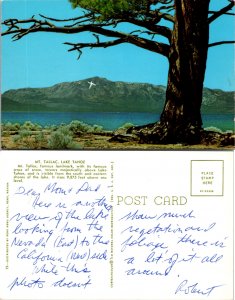 MT. TALLAC, LAKE TAHOE
Mt. Tallac, famous landmark, with its famous
cross of snow, towers majestically above Lake
Tahoe, and is visible from the south and eastern
shores of the lake. It rises 9,875 feet above sea
level.
PLACE
STAMP
HERE
Dear Mom & Dad —
Here is another
view of the lake
looking from the
Nevada (East) to the
California (west) side
While this
photo doesn't
show much
vegetation and
foliage there is
a lot of it all
around.
Robert